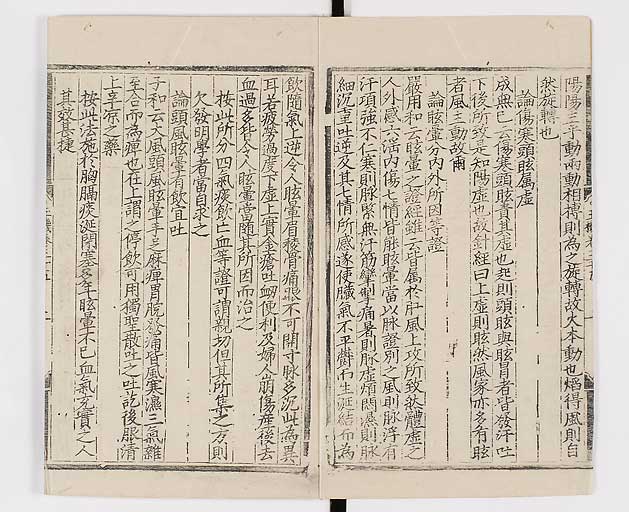 陽陽主乎動兩動相摶則為之旋轉故火本動也焰得風則自
然旋轉也
論傷寒頭眩屬虛
成無已云傷寒頭眩責其虛也起則頭眩與眩冒者皆發汗吐
下後所致是知陽虛也故針經曰上虛則眩然風家亦多有眩
者風主動故爾
論眩暈分內外所因等證
嚴用和云眩暈之證經雖云皆屬於肝風上攻所致然體虛之
人外感六淫內傷七情皆能眩暈當以脉證別之風則脉浮有
汗項強不仁寒則脉緊無汗筋攣掣痛暑則脉虛煩悶濕則脉
細沉重吐逆及其七情所感遂使臟氣不平欝而生涎結而為
飲隨氣上逆令人眩暈眉稜骨痛眼不可開寸脉多沉此為異
耳若疲勞過度下虛上實金瘡吐衂便利及婦人崩傷產後去
血過多皆令人眩暈當隨其所因而治之
按此所分四氣痰飲亡血等證可謂親切但其所集之方則
欠發明學者當自求之
論頭風眩暈有飲宜吐
子和云夫風頭風眩暈手足麻痺胃脘發痛皆風寒濕三氣雜
至合而為痺也在上謂之停飲可用獨聖散吐之吐訖後服清
上辛凉之藥
按此法施於胸膈痰涎閉塞多年眩暈不已血氣充實之人
其效甚捷